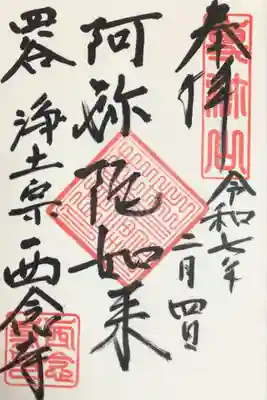 奉拝
令和七年
二月四日
阿弥陀如来
四谷
浄土宗西念寺